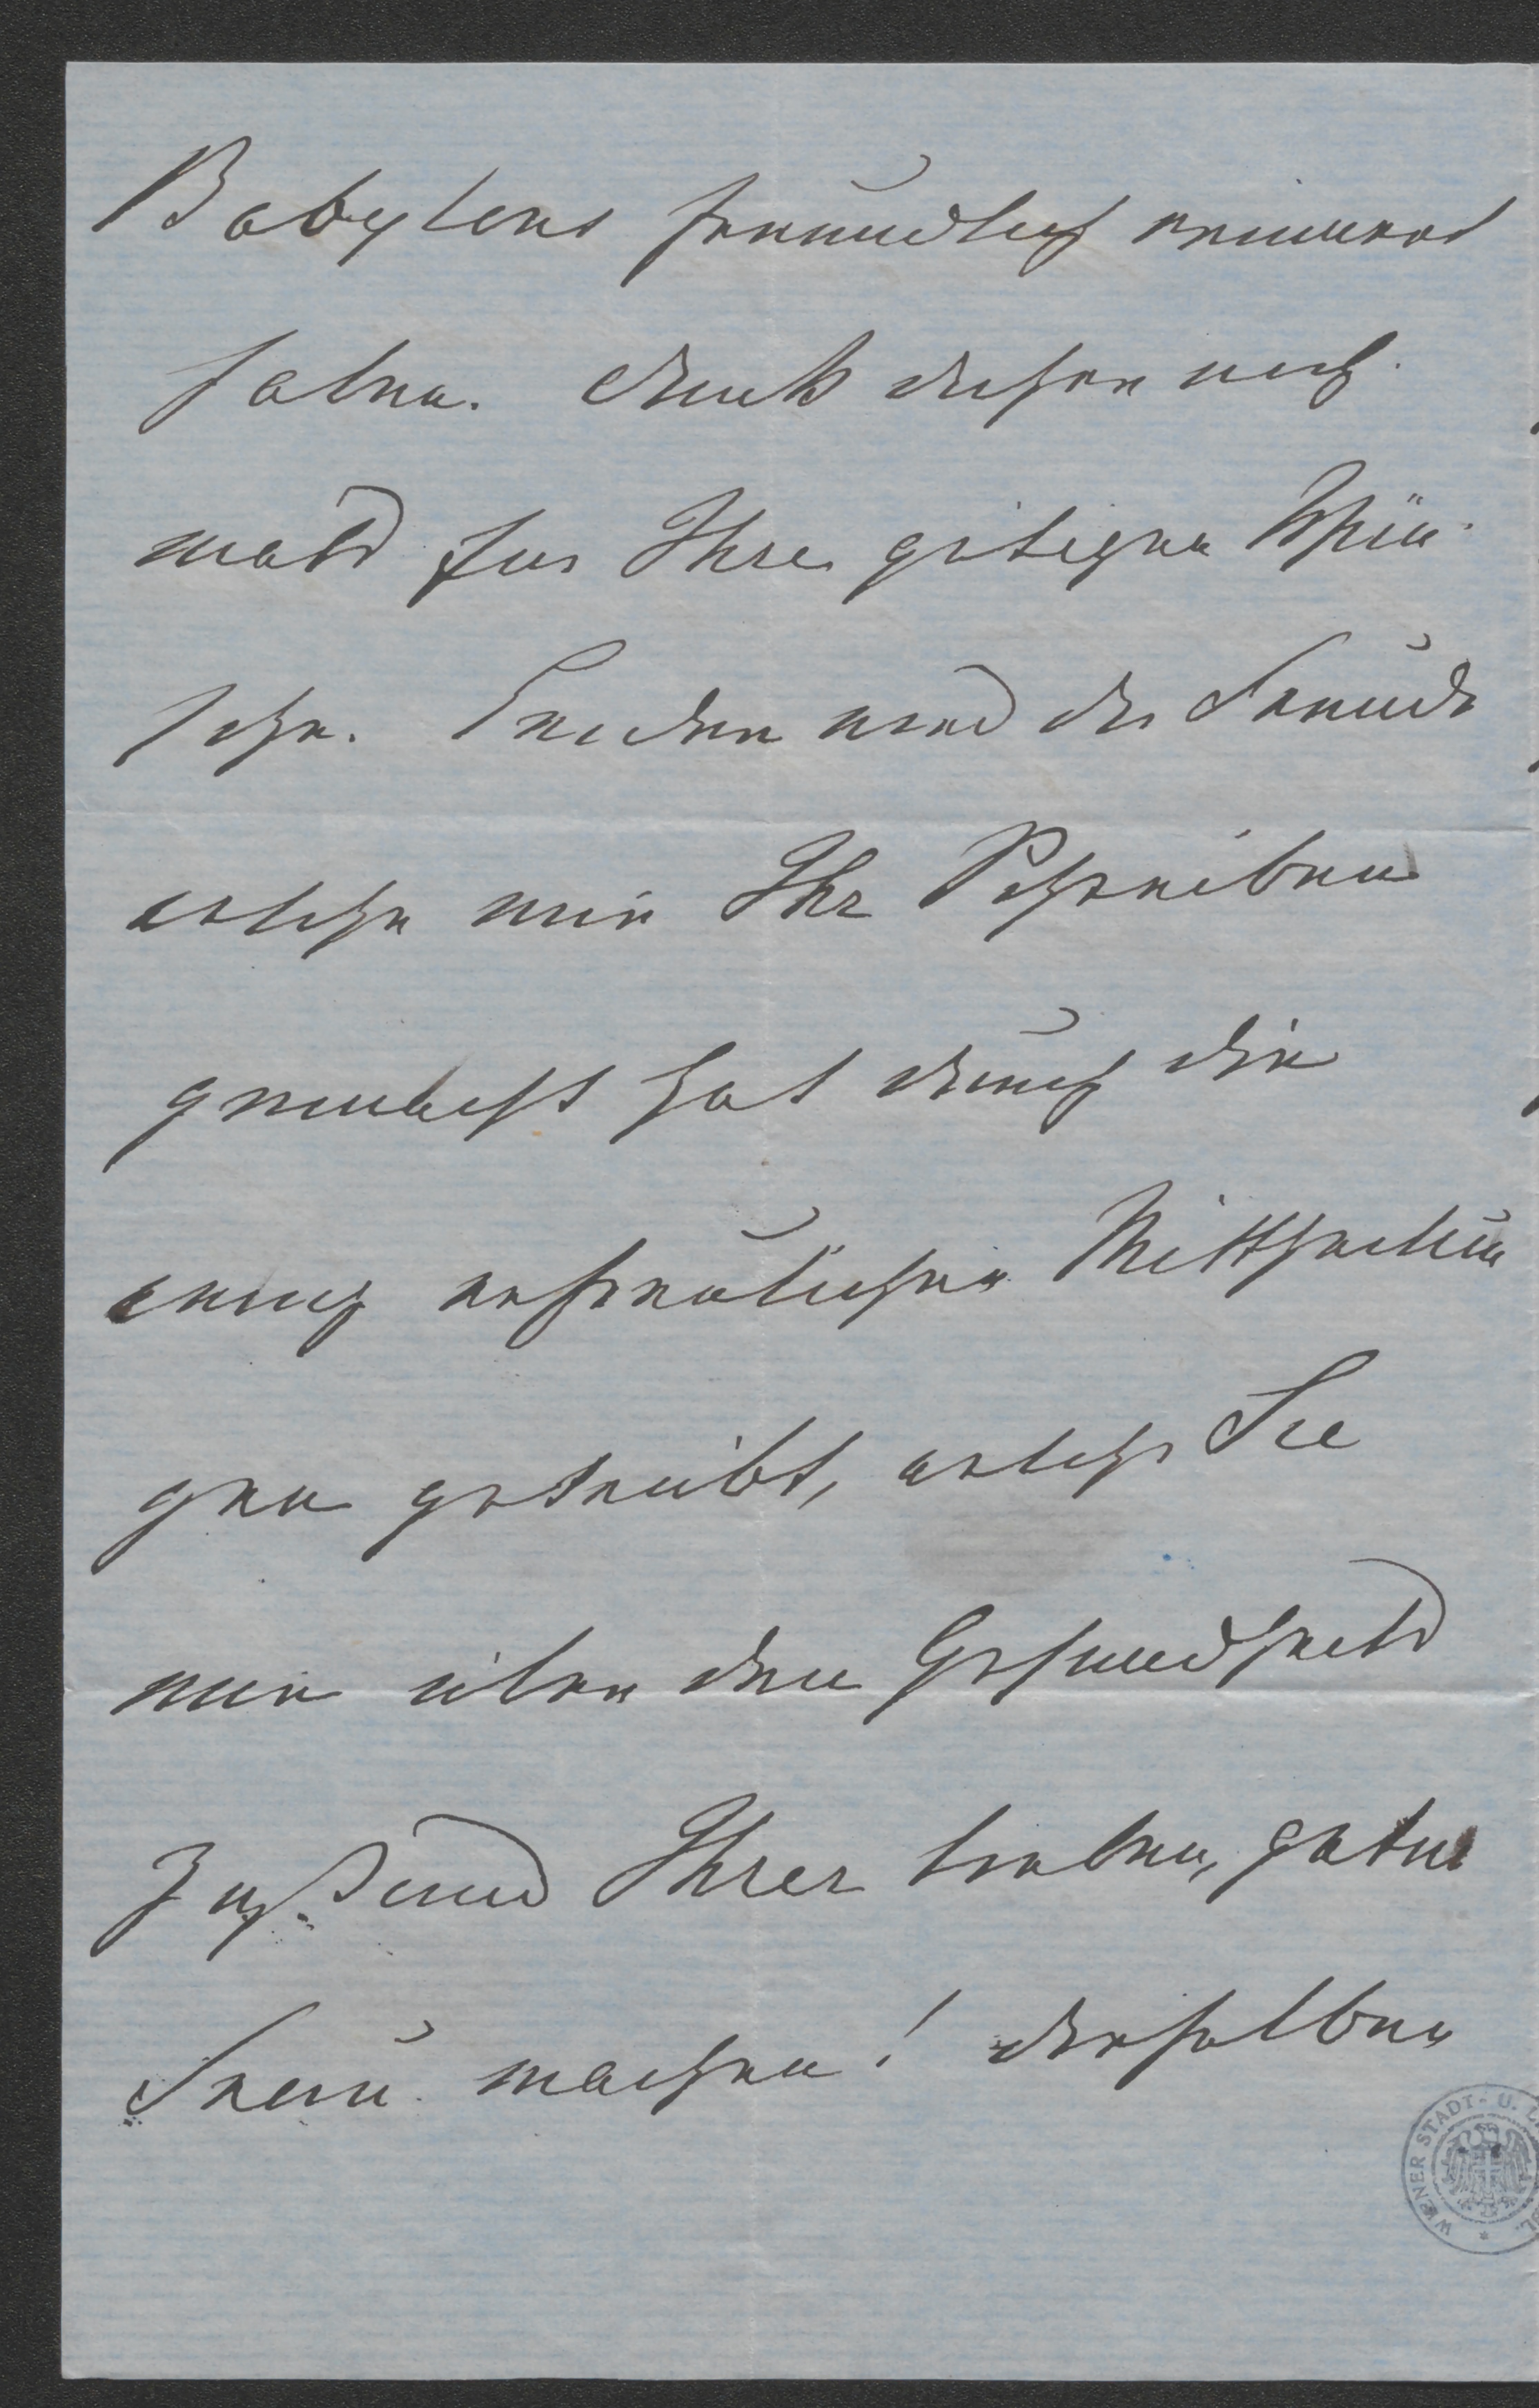 Babylons freundlich erinnert
haben. Dank daher noch
mals für Ihre gütigen Wün
sche. Leider wird die Freude
welche mir Ihr Schreiben
gemacht hat durch die
wenig erfreulichen Mittheilun
gen getrübt, welche Sie
mir über den Gesundheits
Zustand Ihrer lieben, guten
Frau machen! Derselben
WIENER STADT- U.